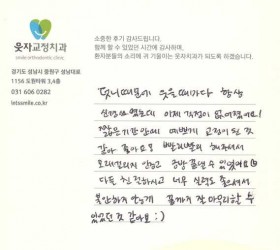 웃자교정치과
smile orthodontic clinic
경기도 성남시 중원구 성남대로
1156 도원타워 3,4층
031 606 0282
letssmile.co.kr
소중한 후기 감사드립니다.
함께 할 수 있었던 시간에 감사하며,
환자분들의 소리에 귀 기울이는 웃자치과가 되도록 하겠습니다.
덧니때문에 웃을때마다 항상
신경쓰였는데 이제 걱정이 없어졌어요!
짧은기간 안에 예쁘게 교정이 된 것
같아 좋아요!!
오래걸리지 않고 금방 끝낼 수 있었어요
다들 친절하시고 너무 잘해 주셔서
불안하지 않게 끝까지 잘 마무리할 수
있었던 것 같아요 :)